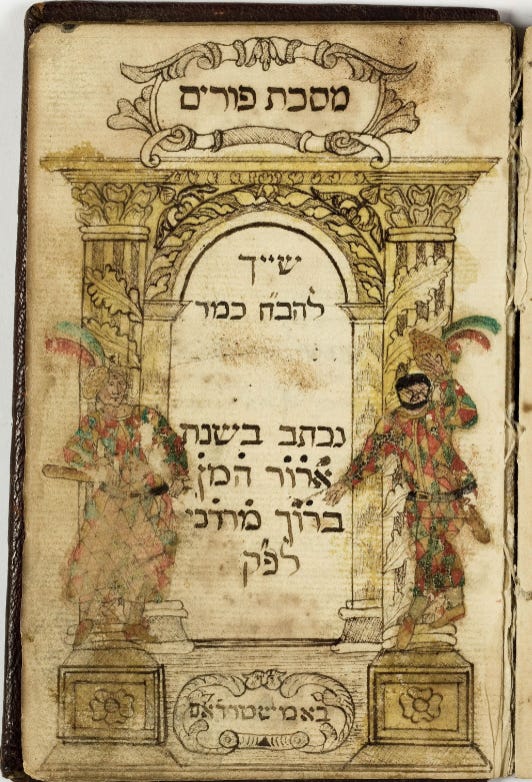 מסכת פורים
שייך
להב"ח כמר
נכתב בשנת
ארור המן
ברוך מרדכי
לפ'ק
באמישטורדאם